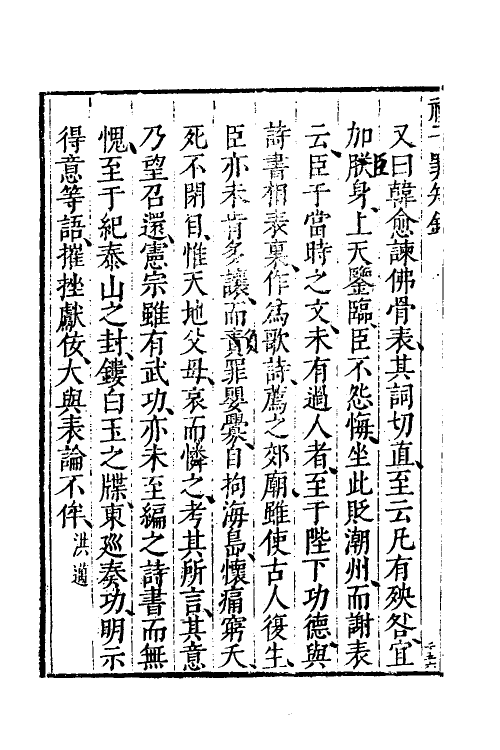 又曰韓愈諫佛骨表其詞切直至云凡有殃咎宜
加朕臣身上天鑒臨臣不怨悔坐此貶潮州而謝表
云臣于當時之文未有過人者至于陛下功德與
詩書相表裏作爲歌詩薦之郊廟雖使古人復生
臣亦未肯多讓而責負罪嬰釁自拘海島懷痛窮天
死不閉目惟天地父母哀而憐之考其所言其意
乃望召還憲宗雖有武功亦未至編之詩書而無
愧至于紀泰山之封鏤白玉之牒東巡奏功明示
得意等語摧挫獻佞大與表論不侔洪邁